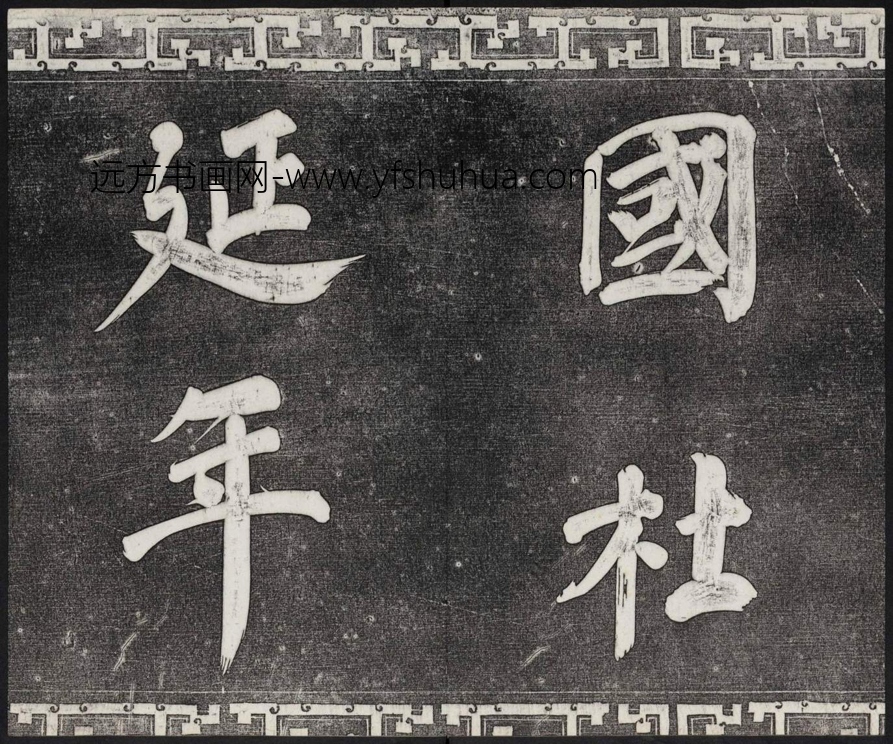 國杜
延年
远方书画网-www.yfshuhua.com